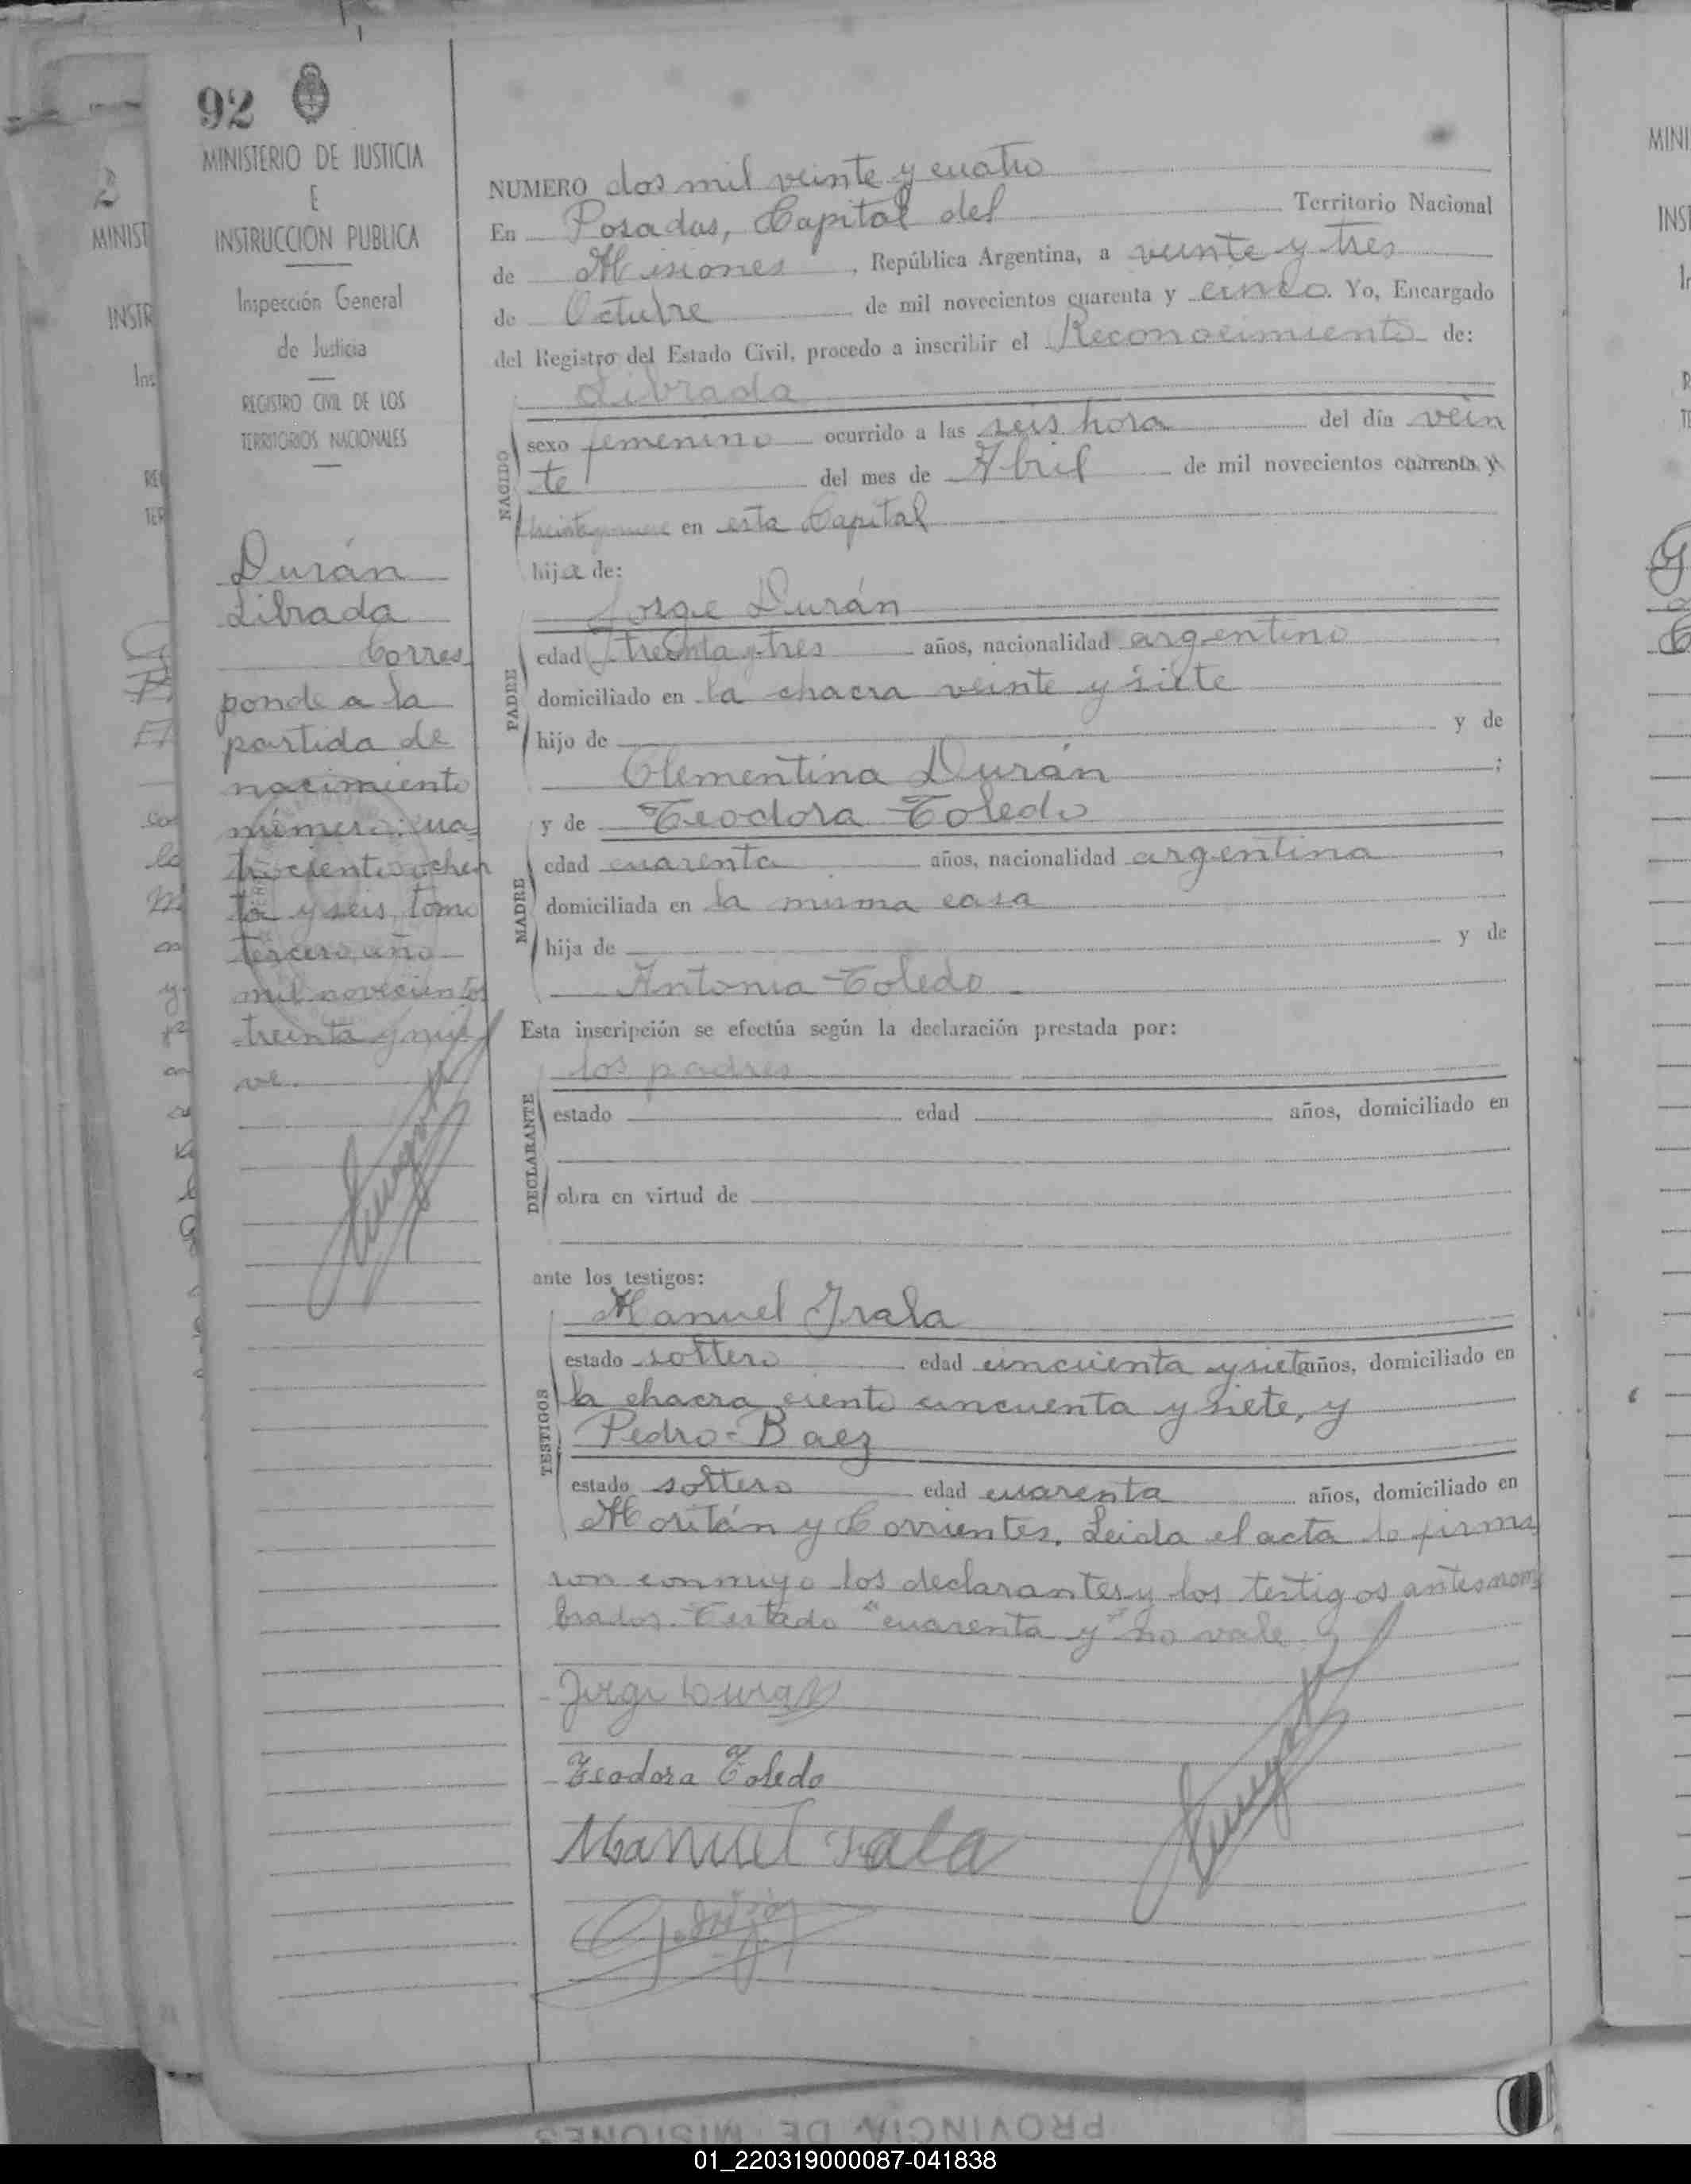 92
MINISTERIO DE JUSTICIA
E
INSTRUCCION PUBLICA
Inspección General
de Justicia
REGISTRO CIVIL DE LOS
TERRITORIOS NACIONALES
Durán
Librada
Corres
ponde a la
partida de
nacimiento
número: cua
trocientos ochen
ta y seis, tomo
tercero, año
mil novecientos
treinta y nue
ve.
NUMERO dos mil veinte y cuatro
En Posadas, Capital del Territorio Nacional
de Misiones, República Argentina, a veinte y tres
de Octubre de mil novecientos cuarenta y cinco. Yo, Encargado
del Registro del Estado Civil, procedo a inscribir el Reconocimiento de:
Librada
NACIDO
sexo femenino ocurrido a las seis hora del día vein
te del mes de Abril de mil novecientos cuarenta y
treinta y nueve en esta Capital
hija de:
Jorge Durán
PADRE
edad treinta y tres años, nacionalidad argentino
domiciliado en la chacra veinte y siete
hijo de y de
Clementina Durán;
y de Teodora Toledo
MADRE
edad cuarenta años, nacionalidad argentina
domiciliada en la misma casa
hija de y de
Antonia Toledo
Esta inscripción se efectúa según la declaración prestada por:
los padres
DECLARANTE
estado edad años, domiciliado en
obra en virtud de
ante los testigos:
Manuel Irala
TESTIGOS
estado soltero edad cincuenta y siete años, domiciliado en
la chacra ciento cincuenta y siete, y
Pedro Baez
estado soltero edad cuarenta años, domiciliado en
Moritán y Corrientes. Leida el acta la firma
ron conmigo los declarantes y los testigos antes nom
brados. Testado "cuarenta y" no vale.
Jorge Duran
Teodora Toledo
Manuel Irala
PROVINCIA DE MISIONES
01_220319000087-041838